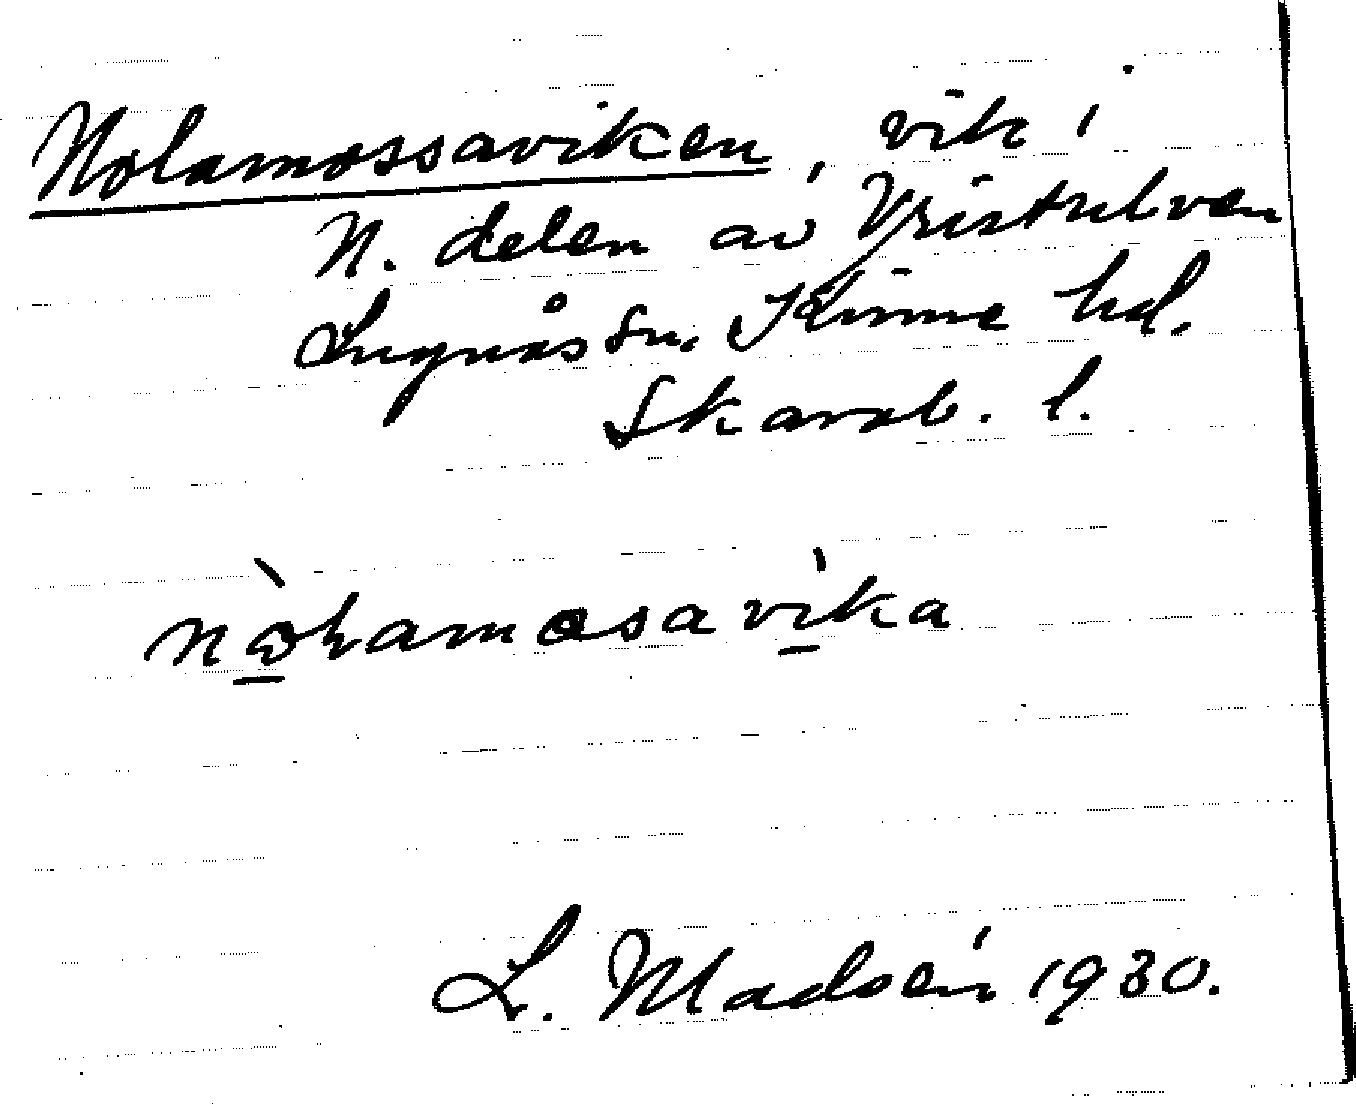 Nolamossaviken, vik i
N. delen av Yristulven
Lugnås sn. Kinne hd.
Skarab. l.
nòhamosavìka
L. Madsén 1930.